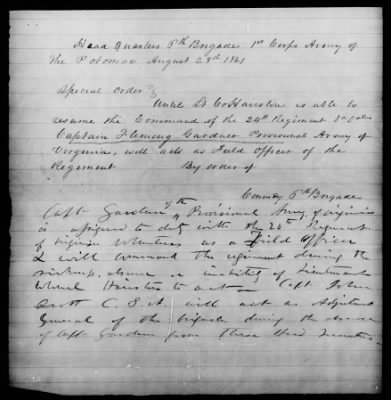 Head Quarters 5th Brigade 1st Corps Army of
the Potomac August 28th 1861
Special Order
Until Lt Col Hairston is able to
resume the Command of the 24th Regiment
Captain Fleming Gardner Provisional Army of
Virginia, will act as Field Officer of the
Regiment By order of
Comdg 5th Brigade
Capt Gardner Provisional Army of Virginia
is assigned to duty with the 24th Regiment
of Virginia Volunteers as a Field Officer
& will command the regiment during the
sickness, absence or inability of Lieutenant
Colonel Hairston to act — Capt John
Scott C. S. A. will act as Adjutant
General of the brigade during the absence
of Capt Gardner from these Head Quarters.